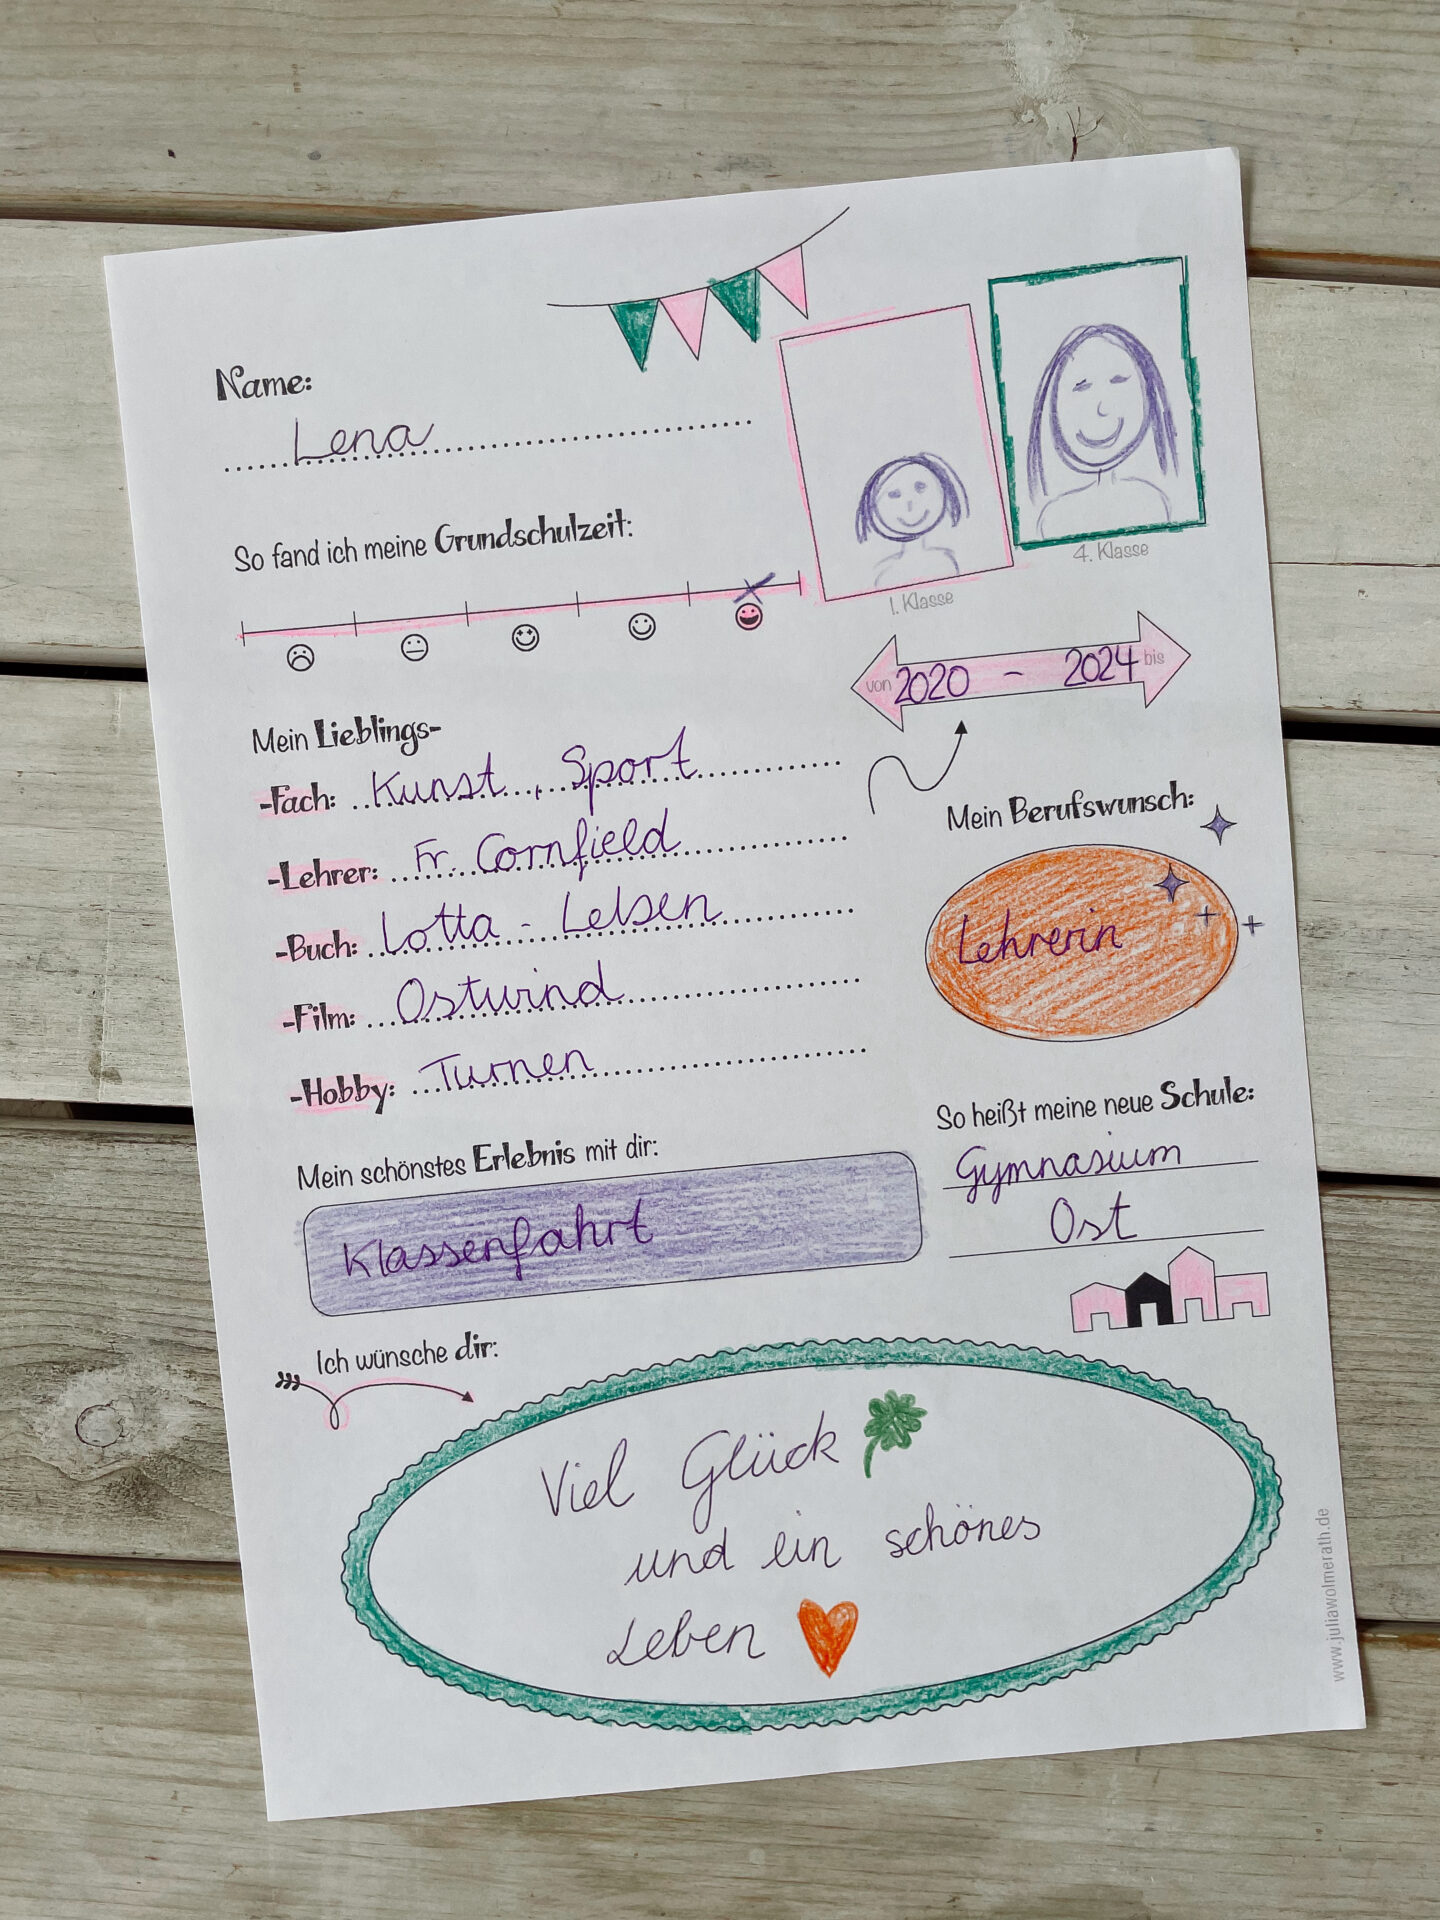 Name:
Lena
So fand ich meine Grundschulzeit:
1. Klasse
4. Klasse
von 2020 - 2024 bis
Mein Lieblings-
-Fach: Kunst, Sport
-Lehrer: Fr. Cornfield
-Buch: Lotta - Leben
-Film: Ostwind
-Hobby: Turnen
Mein Berufswunsch:
Lehrerin
So heißt meine neue Schule:
Gymnasium
Ost
Mein schönstes Erlebnis mit dir:
Klassenfahrt
Ich wünsche dir:
Viel Glück
und ein schönes
Leben
www.juliawolmerath.de